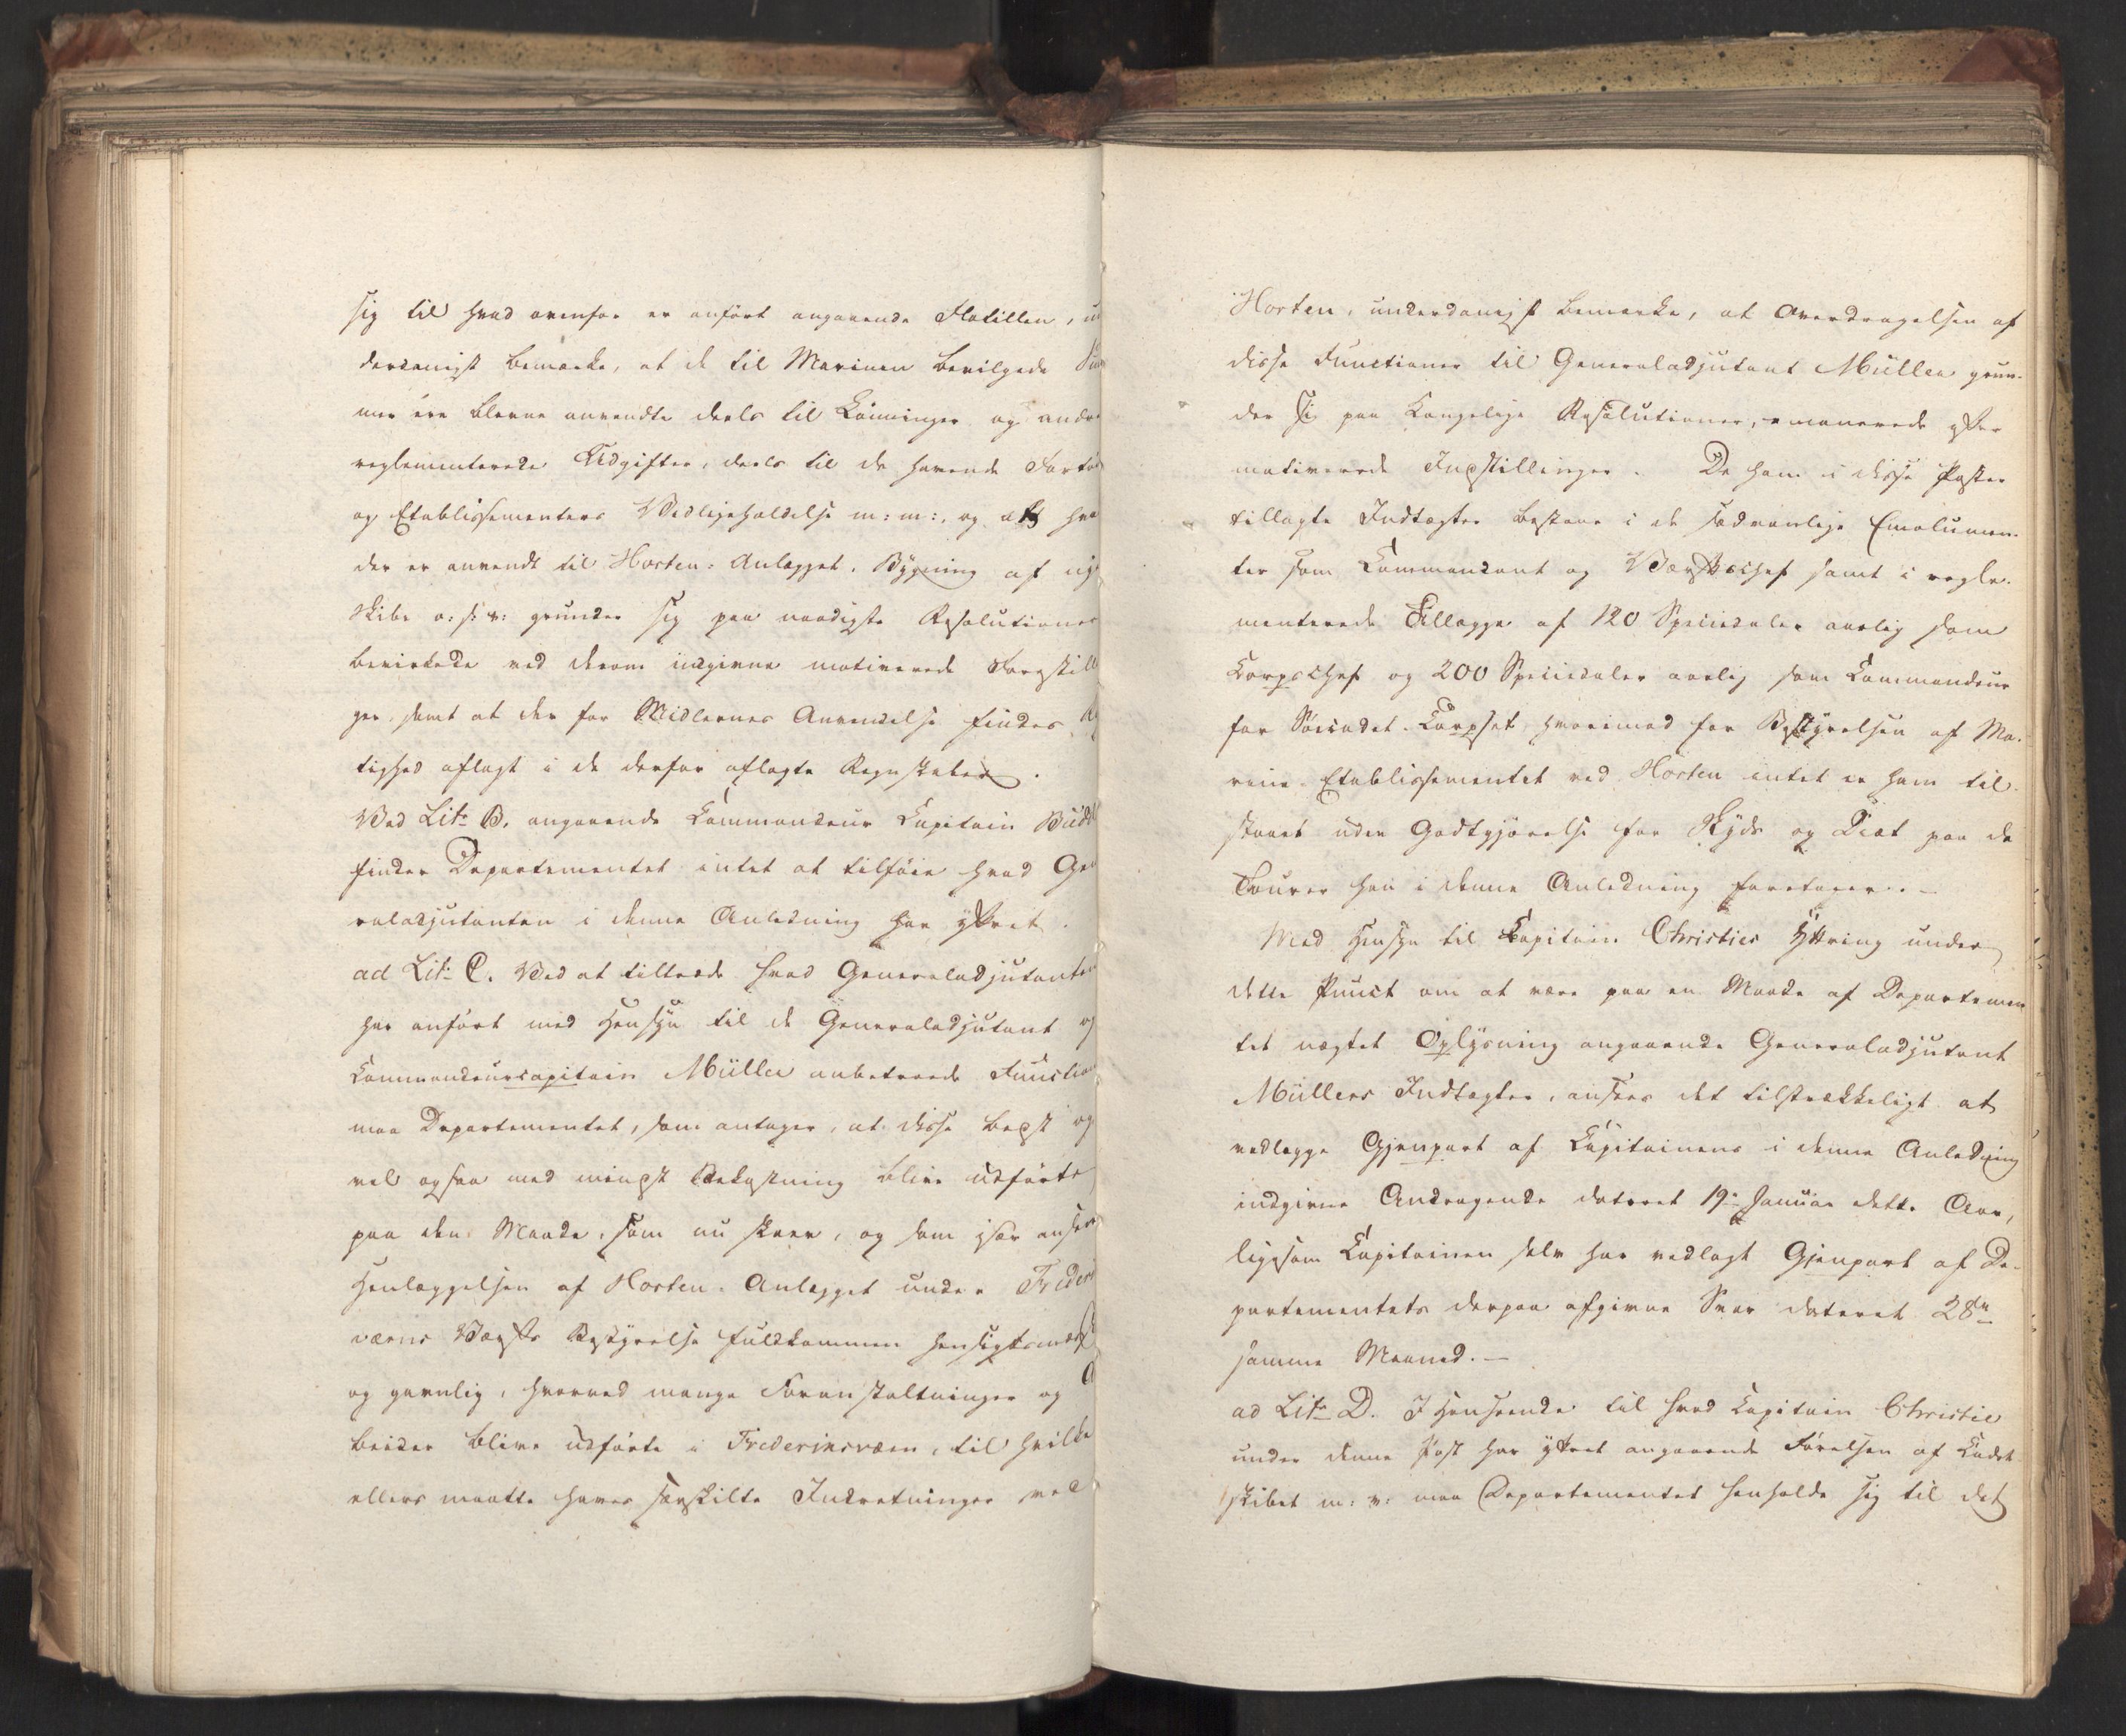 sig til hvad ovenfor er anført angaaende Flotillen, un
derdanigst bemærke, at de til Marinen bevilgede Sum
mer ere blevne anvendte deels til Lønninger og andre
reglementerede Udgifter, deels til de havende Fartøi
og Etablissementers Vedligeholdelse m: m:, og at hva
der er anvendt til Horten-Anlægget, Bygning af nye
Skibe o: s: v: grunder sig paa naadigste Resolutioner
bevirkede ved derom indgivne motiverede Forestill
ger, samt at der for Midlernes Anvendelse findes
tighed aflagt i de derfor aflagte Regnskaber.
Ved Litr B. angaaende Kommandeur Capitain Budd
finder Departementet intet at tilføie hvad Gen
raladjutanten i denne Anledning har yttret.
ad Litr C. Ved at tiltræde hvad Generaladjutanten
har anført med Hensyn til de Generaladjutant og
Kommandeurcapitain Müller anbetroede Function
maa Departementet, som antager, at disse bedst og
vel ogsaa med mindst Bekostning blive udførte
paa den Maade, som nu skeer, og som især anseer
Henlæggelsen af Horten-Anlægget under Frederi
værns Værfts Bestyrelse fuldkommen hensigtsmæs
og gavnlig, hvorved mange Foranstaltninger og A
beider blive udførte i Frederiksværn, til hvilke
ellers maatte haves særskilte Indretninger ved
Horten, underdanigst bemærke, at Overdragelsen af
disse Functioner til Generaladjutant Müller grun-
der sig paa Kongelige Resolutioner, emanerede efter
motiverede Indstillinger. De ham i disse Poster
tillagte Indtægter bestaae i de sædvanlige Emolumen-
ter som Kommandant og Værftschef samt i regle-
menterede Tillægge af 120 Speciedaler aarlig som
Korpschef og 200 Speciedaler aarlig som Kommandeur
for Søecadet-Korpset, hvorimod for Bestyrelsen af Ma-
rine-Etablissementet ved Horten intet er ham til-
staaet uden Godtgjørelse for Skyds og Diæt paa de
Tourer han i denne Anledning foretager. –
Med Hensyn til Kapitain Christies Yttring under
dette Punct om at være paa en Maade af Departemen
tet nægtet Oplysning angaaende Generaladjutant
Müllers Indtægter, ansees det tilstrækkeligt at
vedlægge Gjenpart af Kapitainens i denne Anledning
indgivne Andragende dateret 19de Januar dette Aar,
ligesom Kapitainen selv har vedlagt Gjenpart af De-
partementets derpaa afgivne Svar dateret 28de
samme Maaned. –
ad Litr D. I Henseende til hvad Kapitain Christie
under denne Post har yttret angaaende Førelsen af Kadet
skibet m: v: maa Departementet henholde sig til det